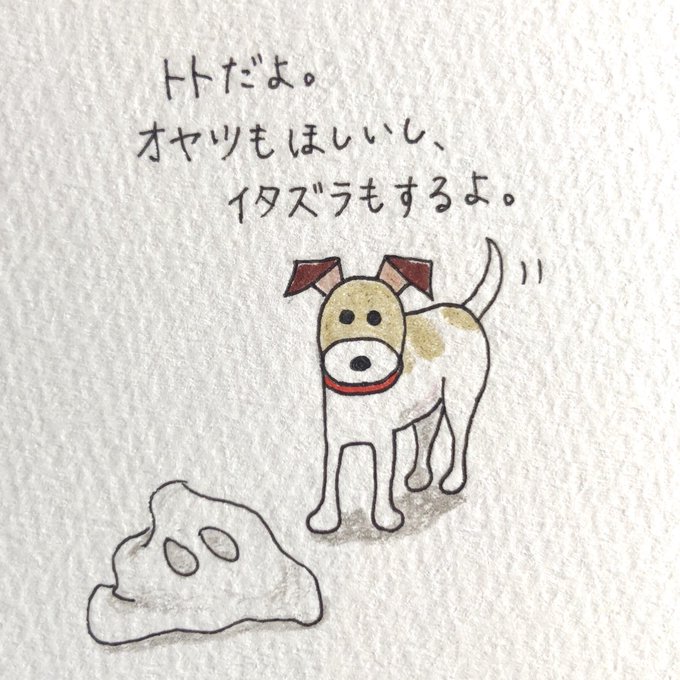 トトだよ。
オヤツもほしいし、
イタズラもするよ。